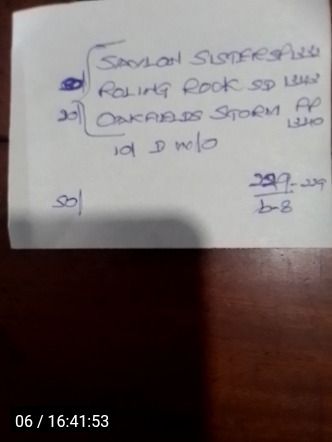 SAVLON SISTERS P 1332
ROLING ROOK SD 1343
20/ OAKFIELDS STORM PP 1340
10/ D W/O
50/
229 - 229
b-8
06 / 16:41:53